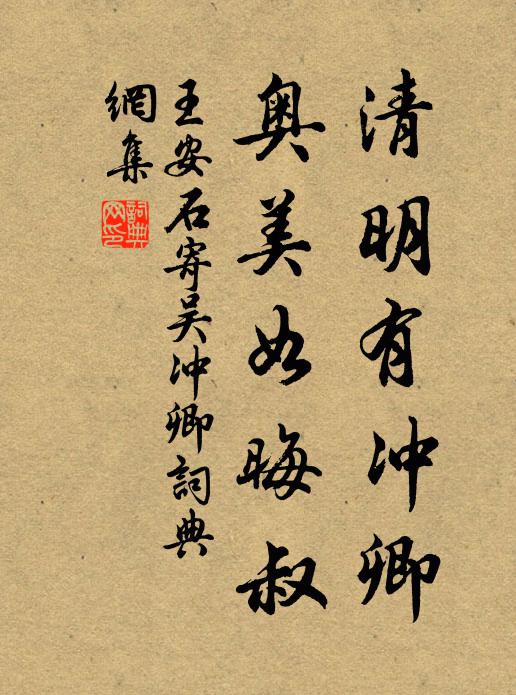 清明有冲卿
奥美如晦叔
王安石寄吴冲卿詞典
網集
詞典網印